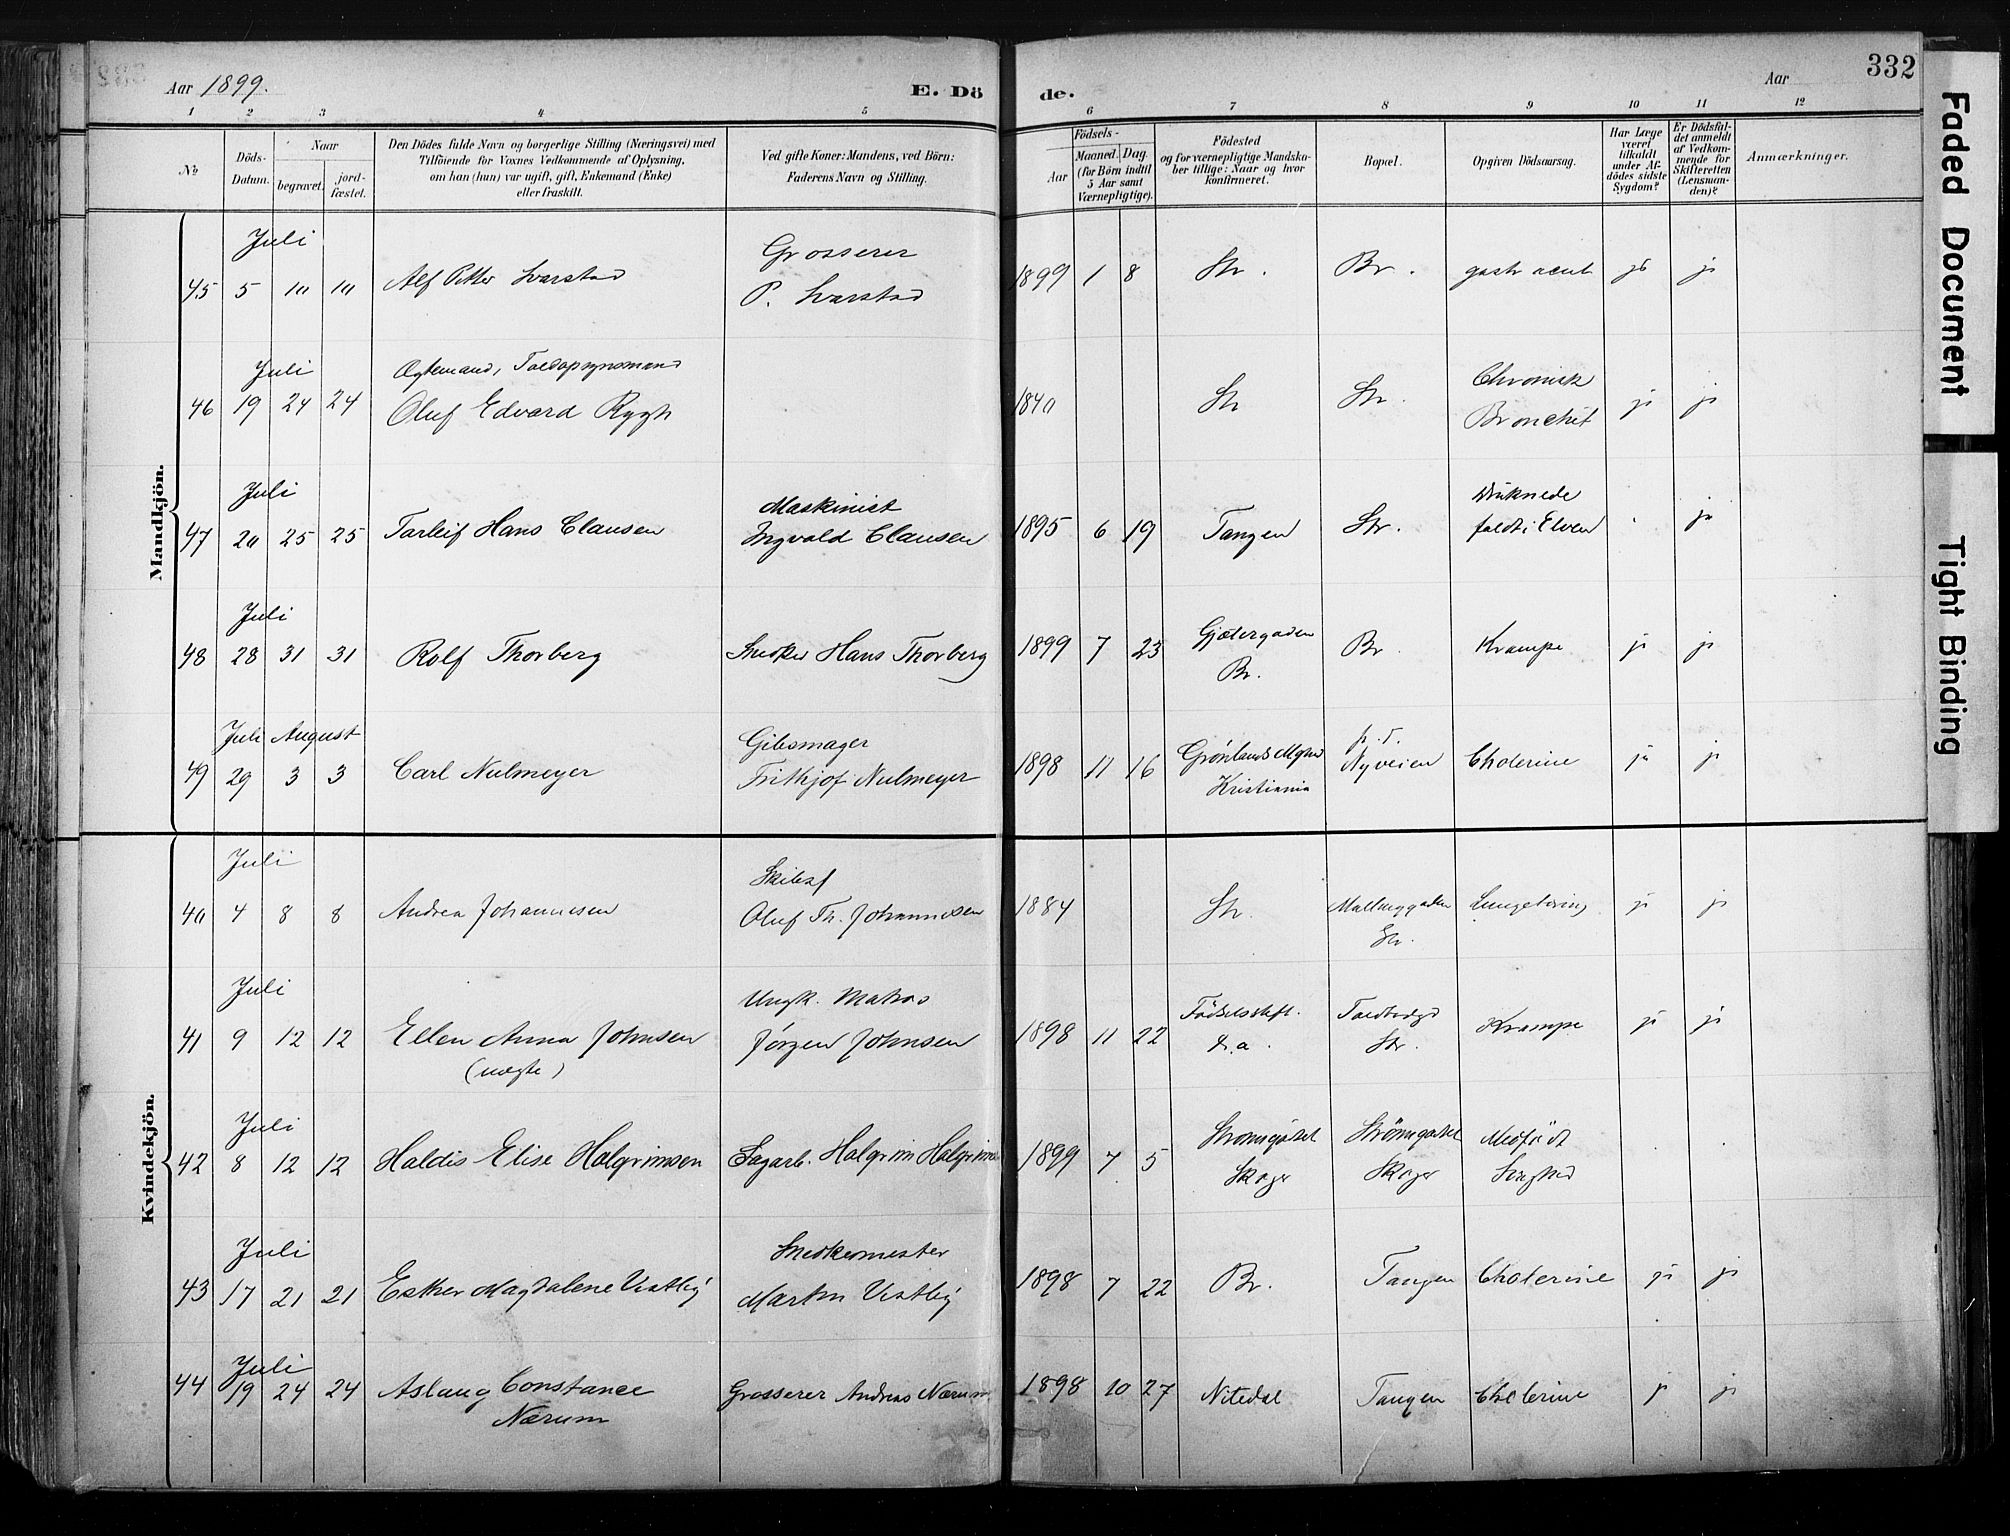 Aar 1899.
E. Dö
de.
Aar
332
1 2 3 4 5 6 7 8 9 10 11 12
No
Döds-
Datum.
Naar
begravet.
jord-
fæstet.
Den Dödes fulde Navn og borgerlige Stilling (Næringsvei) med
Tilföiende for Voxnes Vedkommende af Oplysning,
om han (hun) var ugift, gift, Enkemand (Enke)
eller fraskilt.
Ved gifte Koner: Mandens, ved Börn:
Faderens Navn og Stilling.
Födsels-
Aar
Maaned. Dag.
(for Börn indtil
5 Aar samt
Værnepligtige).
Födested
og for værnepligtige Mandska-
ber tillige: Naar og hvor
konfirmeret.
Bopæl.
Opgiven Dödsaarsag.
Har Læge
været
tilkaldt
under Af-
dödes sidste
Sygdom?
Er Dödsfal-
det anmeldt
af Vedkom-
mende for
Skifteretten
(Lensman-
den)?
Anmærkninger.
Mandkjön.
Juli
Grosserer
45 5 10 10 Alf Petter Svarstad
P. Svarstad
1899 1 8 Str. Br. gastr acut ja ja
Juli
Ægtemand, Toldopsynsmand
46 19 24 24 Oluf Edvard Rygh
1840 Str Str.
Chronisk
Bronchit ja ja
Juli
Maskinist
47 20 25 25 Tarleif Hans Clausen
Ingvald Clausen
1895 6 19 Tangen Str.
Druknede
faldt i Elven ja
Juli
48 28 31 31 Rolf Thorberg
Snedker Hans Thorberg
1899 7 23 Gjætergaden
Br.
Br. Krampe ja ja
Juli August
Gibsmager
49 29 3 3 Carl Nulmeyer
Frithjof Nulmeyer
1898 11 16 Grønlands
Kristiania
p.t.
Nyveien Cholerine ja ja
Kvindekjön.
Juli
Skibsf
40 4 8 8 Andrea Johannesen
Oluf Th. Johannesen
1884 Str.
Mallinggaden
Str.
ja ja
Juli
Ungk. Matros
41 9 12 12 Ellen Anna Johnsen
(uægte)
Jørgen Johnsen
1898 11 22 Fødselsstift.
K.a.
Toldbodgd
Str.
Krampe ja ja
Juli
42 8 12 12 Haldis Elise Halgrimsen
Sagarb. Halgrim Halgrimsen
1899 7 5 Strømsgodset
Skoger
Strömsgodset
Skoger
Medfödt
Svaghed
Juli
Snedkermester
43 17 21 21 Esther Magdalene Vestby
Martin Vestby
1898 7 22 Br. Tangen Cholerine ja ja
Juli
44 19 24 24 Aslaug Constance
Nærum
Grosserer Andreas Nærum.
1898 10 27 Nitedal Tangen Cholerine ja ja
Faded Document
Tight Binding